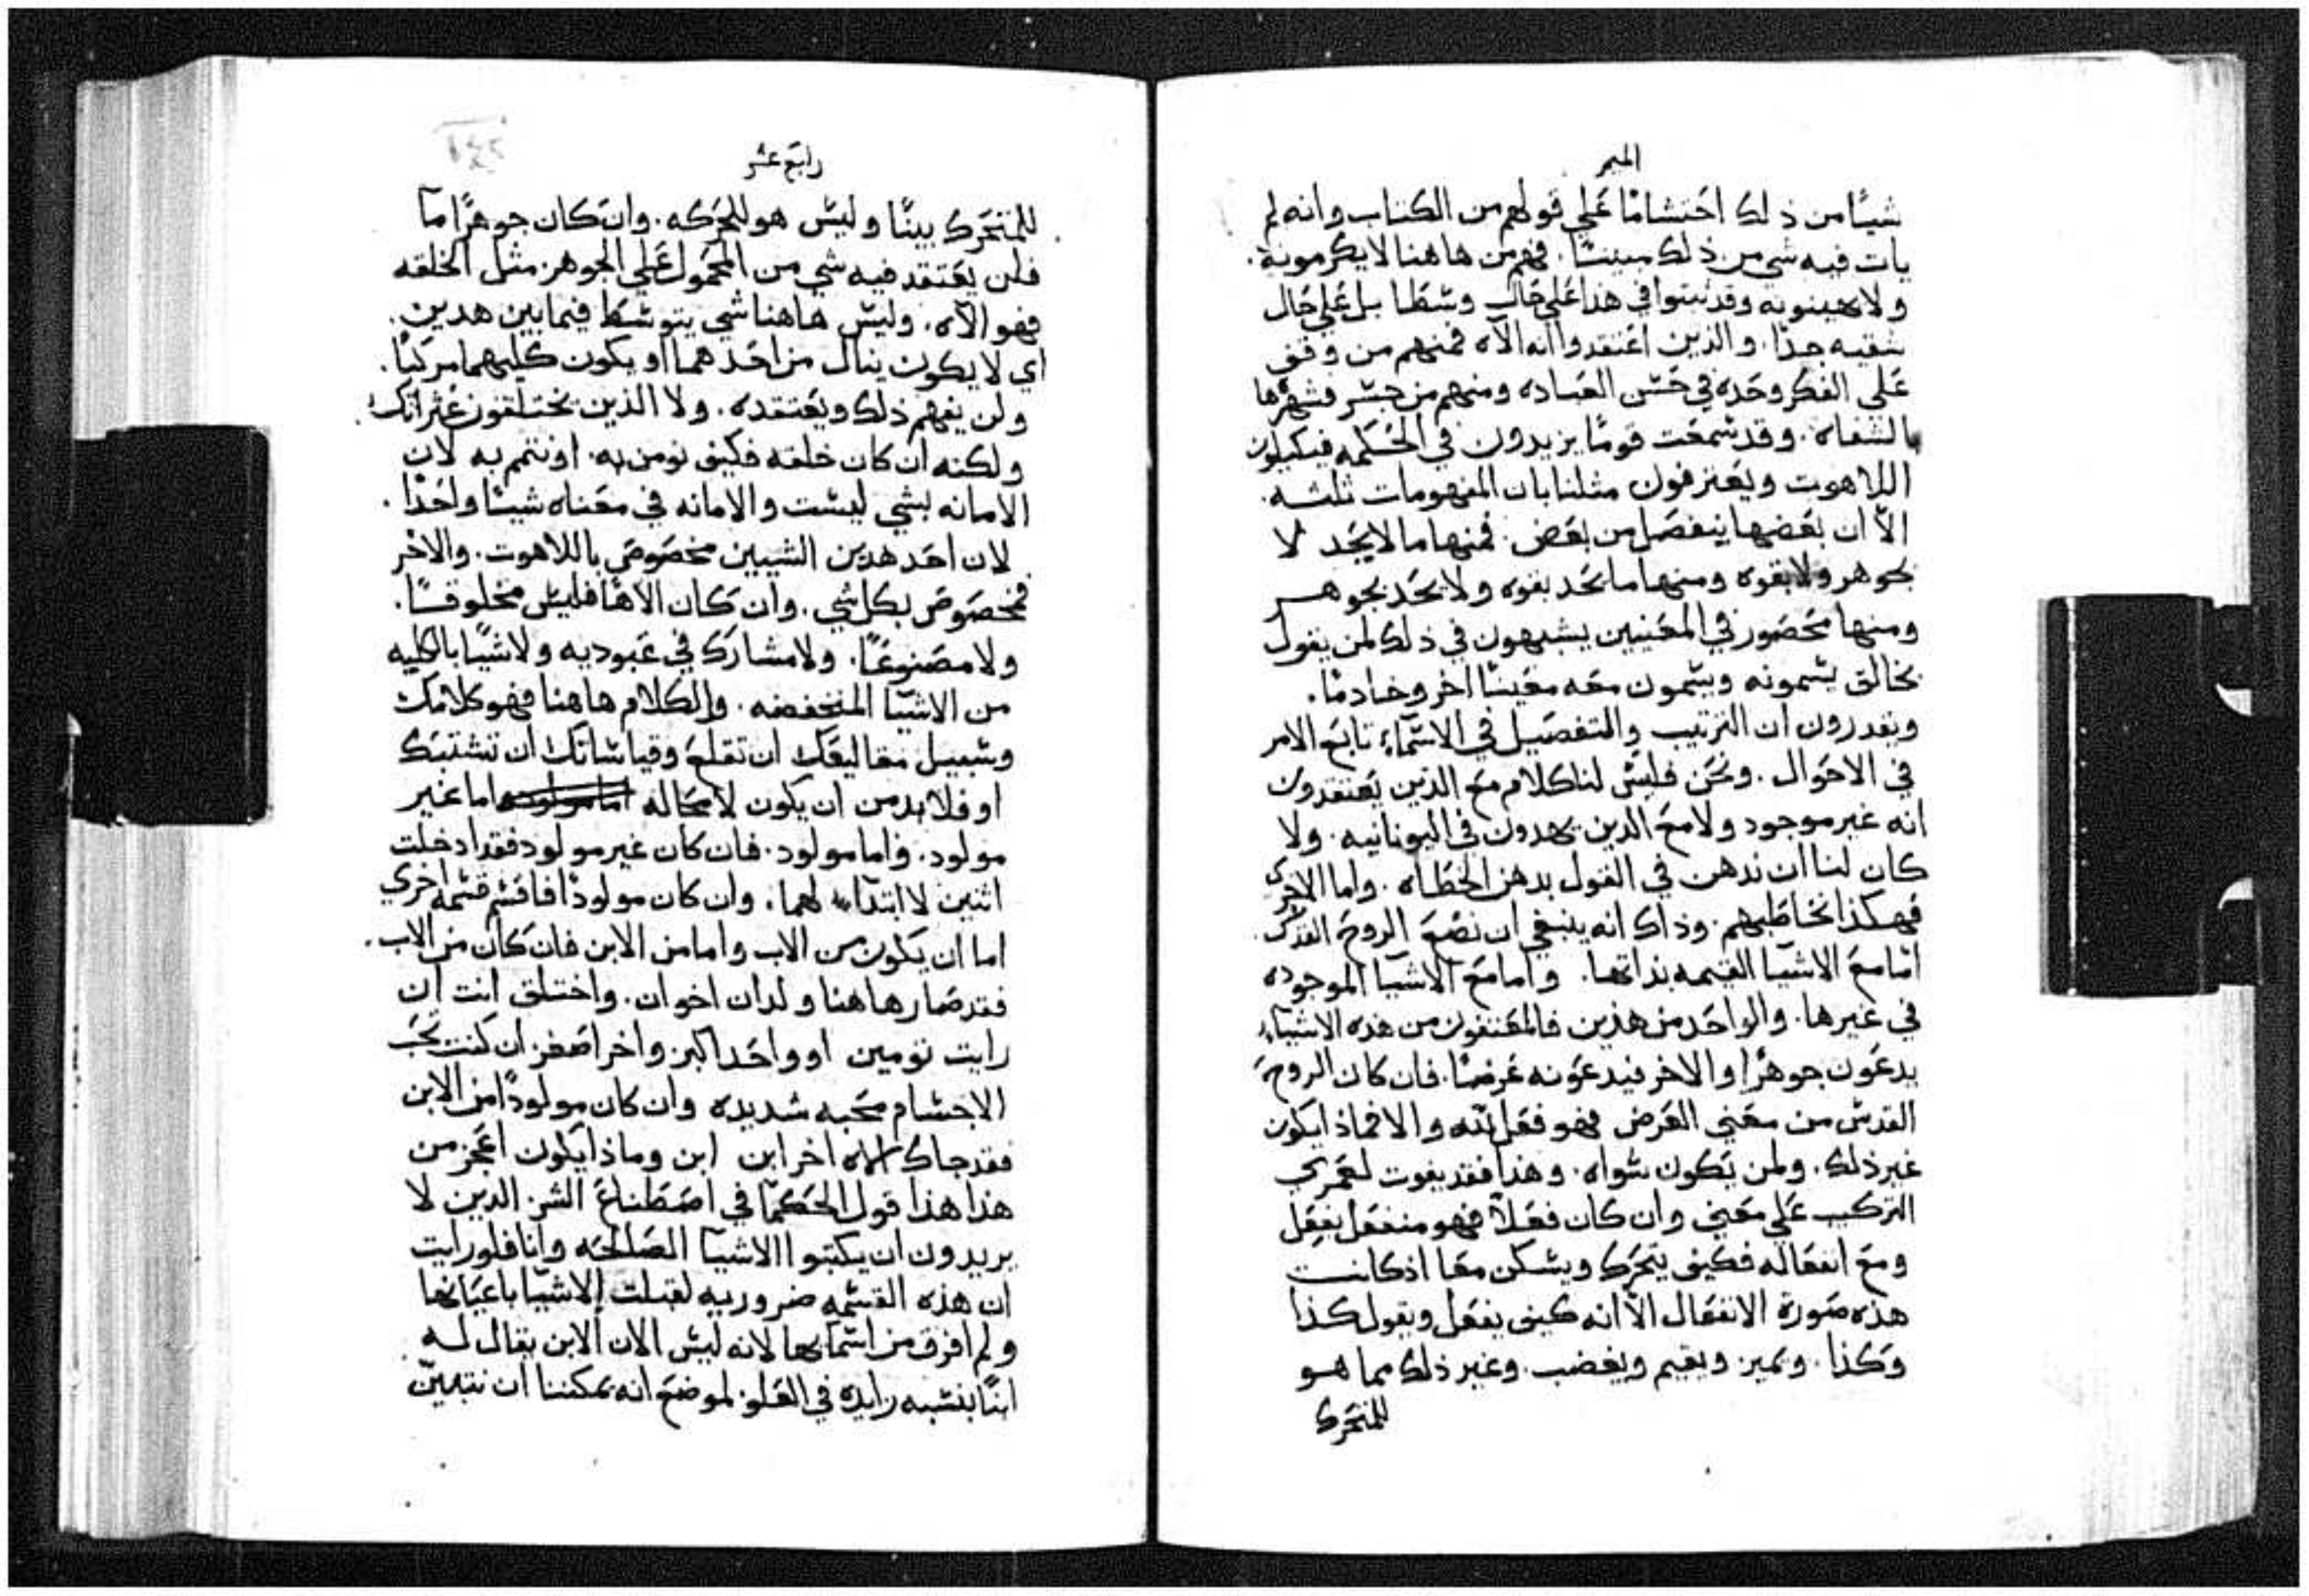 الميمر
شيًا من ذلك احتشامًا علي قولهم من الكتاب وانه لم
يات فيه شي من ذلك مبينًا. فهم من هاهنا لا يكرمونه.
ولا يهينونه وقد ثبتوا في هذا علي حال وسطا بل علي حال
شقيه جدًا. والذين اعتقدوا انه الاه فمنهم من وقف
علي الفكر وحده في حسن العباده ومنهم من جسر فشهرها
بالشفاه. وقد سمعت قومًا يزيدون في الحكمه فيكيلون
اللاهوت ويعترفون مثلنا بان المفهومات ثلثه.
الاّ ان بعضها ينفصل من بعض. فمنها ما لا يحد لا
بجوهر ولا بقوه ومنها ما يحد بقوه ولا يحد بجوهر
ومنها محصور في المعنيين يشبهون في ذلك لمن يقول
بخالق يسمونه ويسمون معه معينًا اخر وخادمًا.
ويقدرون ان الترتيب والتفصيل في الاسماء تابع الامر
في الاحوال. ونحن فليس لنا كلام مع الذين يعتقدون
انه غير موجود ولا مع الدين يهدون في اليونانيه. ولا
كان لنا ان ندهن في القول بدهن الخطاه. واما الاخرى
فهكذا نخاطبهم. وذاك انه ينبغي ان نضع الروح القدس.
امّا مع الاشيا القيمه بذاتها. واما مع الاشيا الموجوده
في غيرها. والواحد من هذين فالمعتنون من هذه الاشياء
يدعون جوهرًا والاخر فيدعونه عرضًا. فان كان الروح
القدس من معني العرض فهو فعل لله والا فماذا يكون
غير ذلك. ولمن يكون سواه. وهذا فقد يفوت لعمري
التركيب علي معني وان كان فعلاً فهو منفعل بفعل
ومع انفعاله فكيف يتحرك ويسكن معا اذ كانت
هذه صورة الانفعال الاّ انه كيف يفعل ويقول كذا
وكذا. ويميز ويقيم ويغضب. وغير ذلك مما هو
للمتحرك
رابع عشر
للمتحرك بينًا وليس هو للحركه. وان كان جوهرًا ما
فلن يعتقد فيه شي من المحمول علي الجوهر مثل الخلقه
فهو الاه. وليس هاهنا شي يتوسط فيما بين هدين.
اي لا يكون ينال من احدهما او يكون كليهما مركبًا.
ولن يفهم ذلك ويعتقده. ولا الذين يختلقون غثراتك.
ولكنه ان كان خلقه فكيف نومن به. او نتم به لان
الامانه بشي ليست والامانه في معناه شيئًا واحدًا.
لان احد هدين الشيين مخصوص باللاهوت. والاخر
فمخصوص بكل شي. وان كان الاهًا فليس مخلوقًا.
ولا مصنوعًا. ولا مشارك في عبوديه ولا شيًا بالكليه
من الاشيا المنخفضه. والكلام هاهنا فهو كلامك
وسبيل مغاليقك ان تقلع وقياساتك ان تشتبك
او فلابد من ان يكون لا محاله اما غير
مولود. واما مولود. فان كان غير مولود فقد ادخلت
اثنين لا ابتداء لهما. وان كان مولودًا فاقسم قسمه اخري
اما ان يكون من الاب واما من الابن فان كان من الاب.
فقد صار هاهنا ولدان اخوان. واختلق انت ان
رايت تومين او واحد اكبر واخر اصغر ان كنت تحب
الاجسام محبه شديده وان كان مولودًا من الابن
فقد جاك الاه اخر ابن ابن وماذا يكون اعجز من
هذا هذا قول الحكما في اصطناع الشر. الذين لا
يريدون ان يكتبوا الاشيا الصالحه وانا فلو رايت
ان هذه القسمه ضروريه لقبلت الاشيا باعيانها
ولم افرق من اسمائها لانه ليس الان الابن يقال له
ابنًا بنسبه زايده في العلو. لموضع انه يمكننا ان نتبين